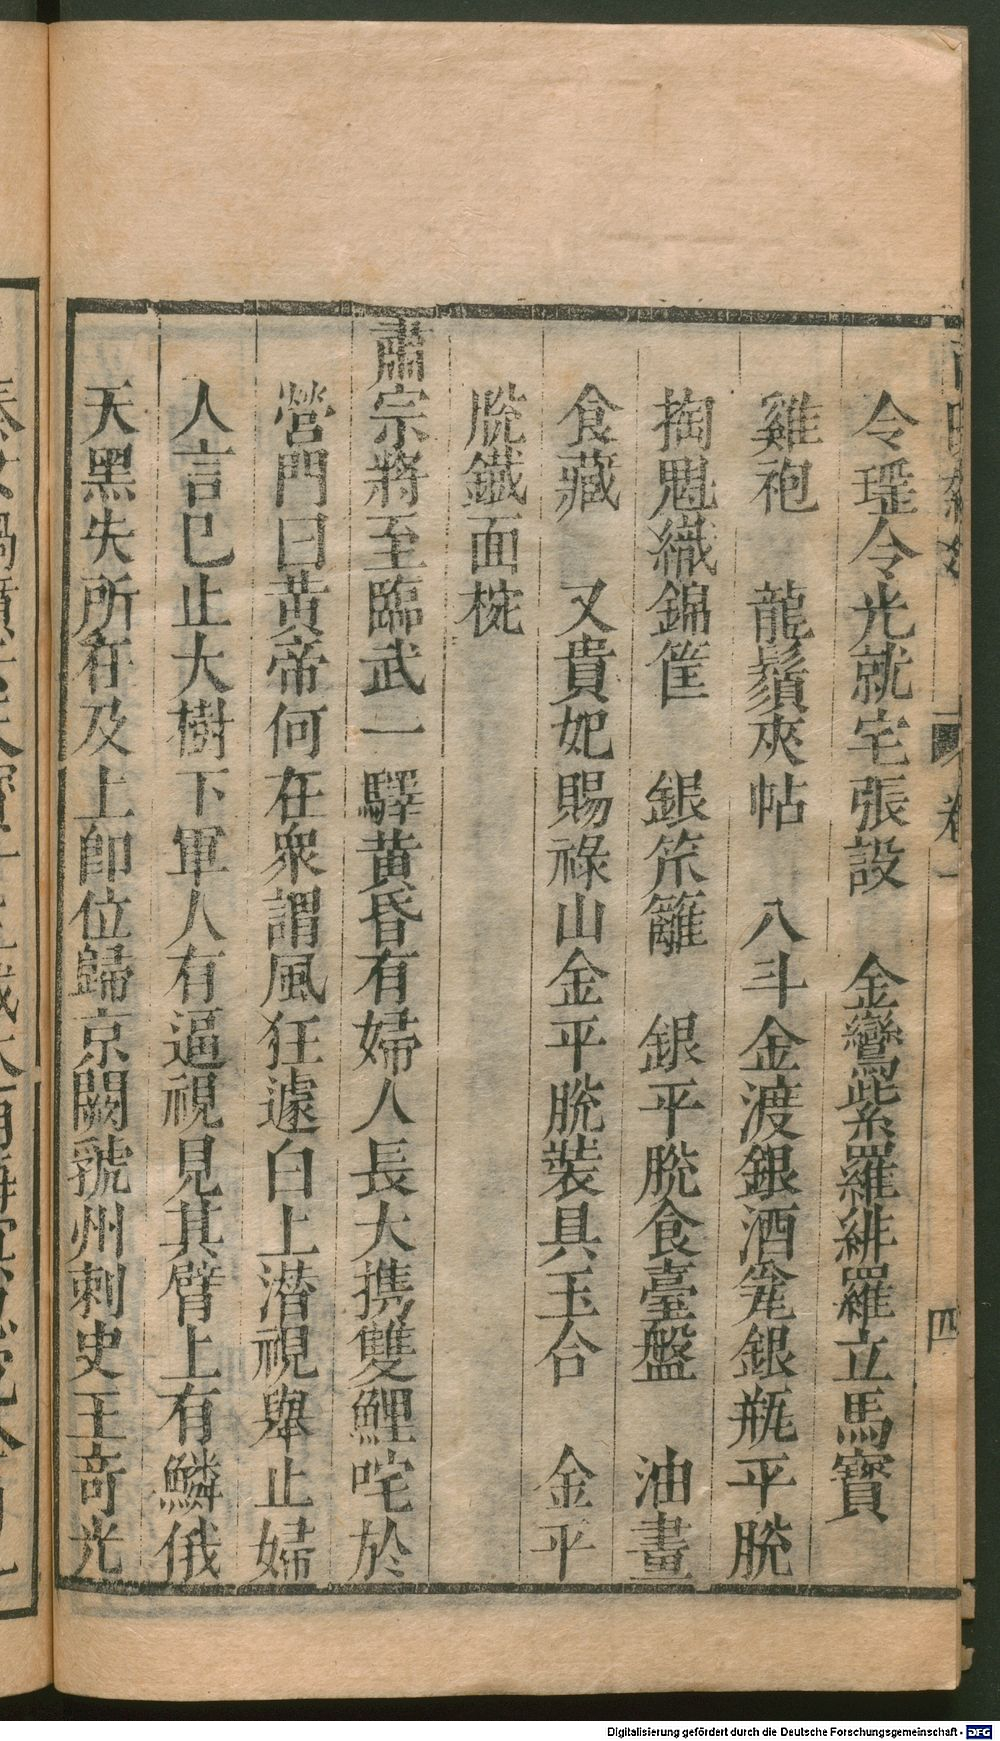 令瑶令光就宅張設　金鸞紫羅緋羅立馬寶
雞袍　龍鬚夾帖　八斗金渡銀酒瓮銀瓶平脫
掏魁織錦筐　銀笊籬　銀平脫食臺盤　油畫
食藏　又貴妃賜祿山金平脫裝具玉合　金平
脫鐵面椀
肅宗將至臨武一驛黄昏有婦人長大携雙鯉咤於
營門曰黄帝何在衆謂風狂遽白上潜視舉止婦
人言已止大樹下軍人有逼視見其臂上有鱗俄
天黑失所在及上卽位歸京闕虢州刺史王竒光
卷一
四
Digitalisierung gefördert durch die Deutsche Forschungsgemeinschaft - DFG